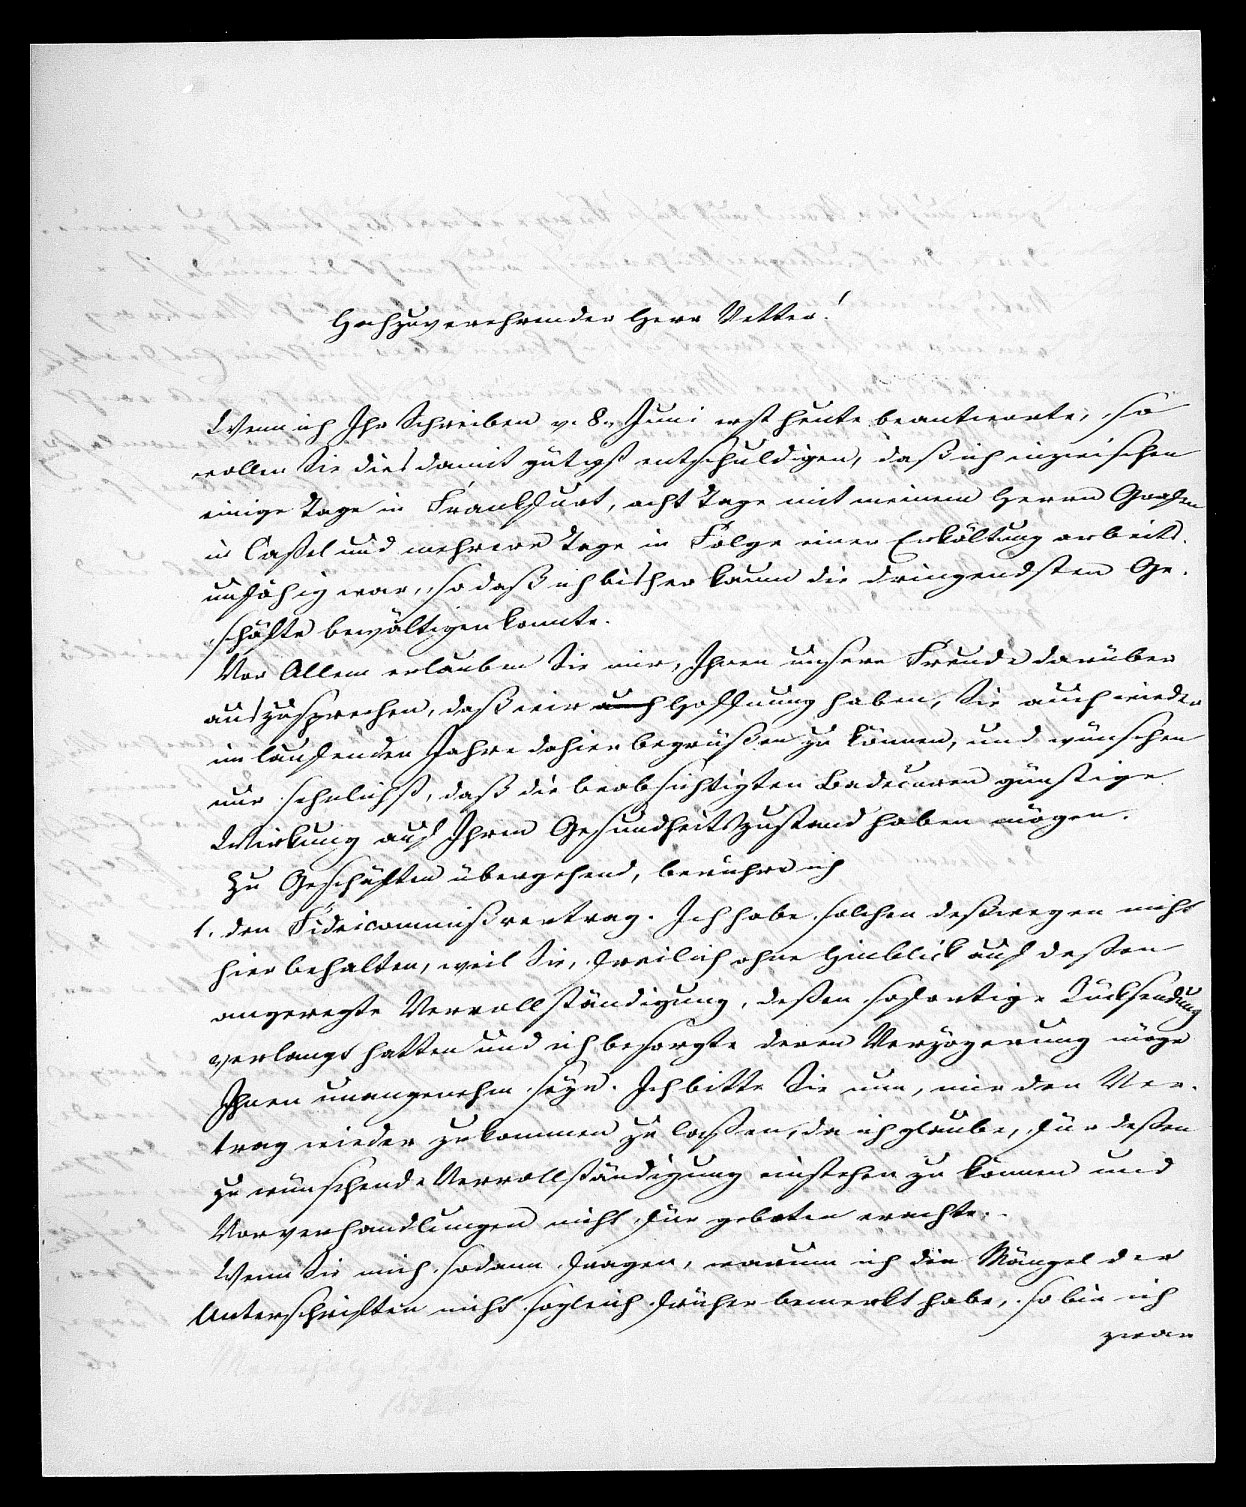 Hochzuverehrender Herr Vetter!
Wenn ich Ihr Schreiben v. 8. Juni erst heute beantworte, so
wollen Sie dies damit gütigst entschuldigen, daß ich inzwischen
einige Tage in Frankfurt, acht Tage mit meinem Herrn Grafen
in Caßel und mehrere Tage in Folge einer Erkältung arbeits-
unfähig war, so daß ich bisher kaum die dringendsten Ge-
schäfte bewältigen konnte.
Vor Allem erlauben Sie mir, Ihnen unsere Freude darüber
auszusprechen, daß wir auch Hoffnung haben, Sie auch wieder
im laufenden Jahre dahier begrüßen zu können, und wünschen
nur sehnlichst, daß die beabsichtigten Badecuren günstige
Wirkung auf Ihren Gesundheitszustand haben mögen.
Zu Geschäften übergehend, berühre ich
1. den Fideicommißvertrag. Ich habe solchen deßwegen nicht
hier behalten, weil Sie, freilich ohne Hinblick auf deßen
angeregte Vervollständigung, deßen sofortige Rücksendung
verlangt hatten und ich besorgte deren Verzögerung möge
Ihnen unangenehm seyn. Ich bitte Sie nun, mir den Ver-
trag wieder zukommen zu laßen, da ich glaube, für deßen
zu wünschende Vervollständigung einstehen zu können und
Vorverhandlungen nicht für geboten erachte.
Wenn Sie mich sodann fragen, warum ich die Mängel der
Unterschriften nicht sogleich früher bemerkt habe, so bin ich
zwar